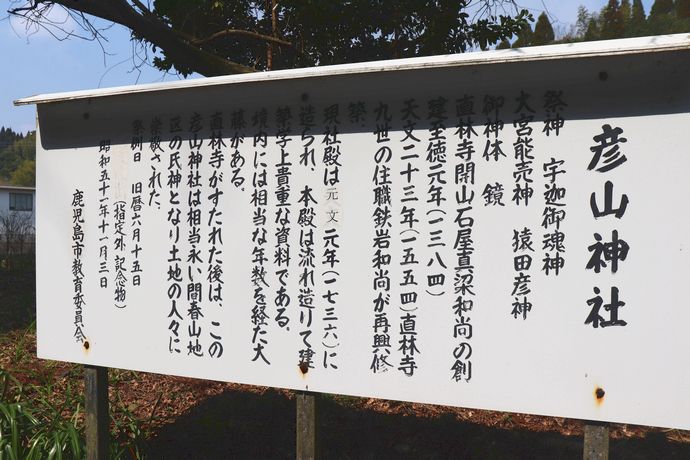 彦山神社
祭神　宇迦御魂神
大宮能売神　猿田彦神
御神体　鏡
直林寺開山石屋真梁和尚の創
建至徳元年（一三八四）
天文二十三年（一五五四）直林寺
九世の住職鉄岩和尚が再興修
築。
現社殿は元文元年（一七三六）に
造られ、本殿は流れ造りで建
築学上貴重な資料である。
境内には相当な年数を経た大
藤がある。
直林寺がすたれた後は、この
彦山神社は相当永い間春山地
区の氏神となり土地の人々に
崇敬された。
祭祠日　旧暦六月十五日
（指定外　記念物）
昭和五十一年十一月三日
鹿児島市教育委員会